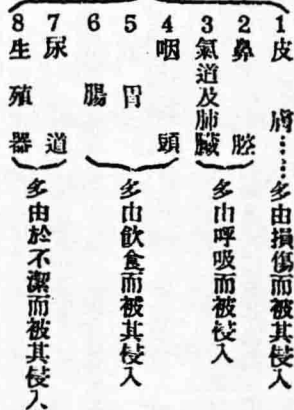 1皮膚……多由損傷而被其侵入
2鼻腔
3氣道及肺臟
多由呼吸而被其侵入
4咽頭
5胃
6腸
多由飲食而被其侵入
7尿道
8生殖器
多由於不潔而被其侵入